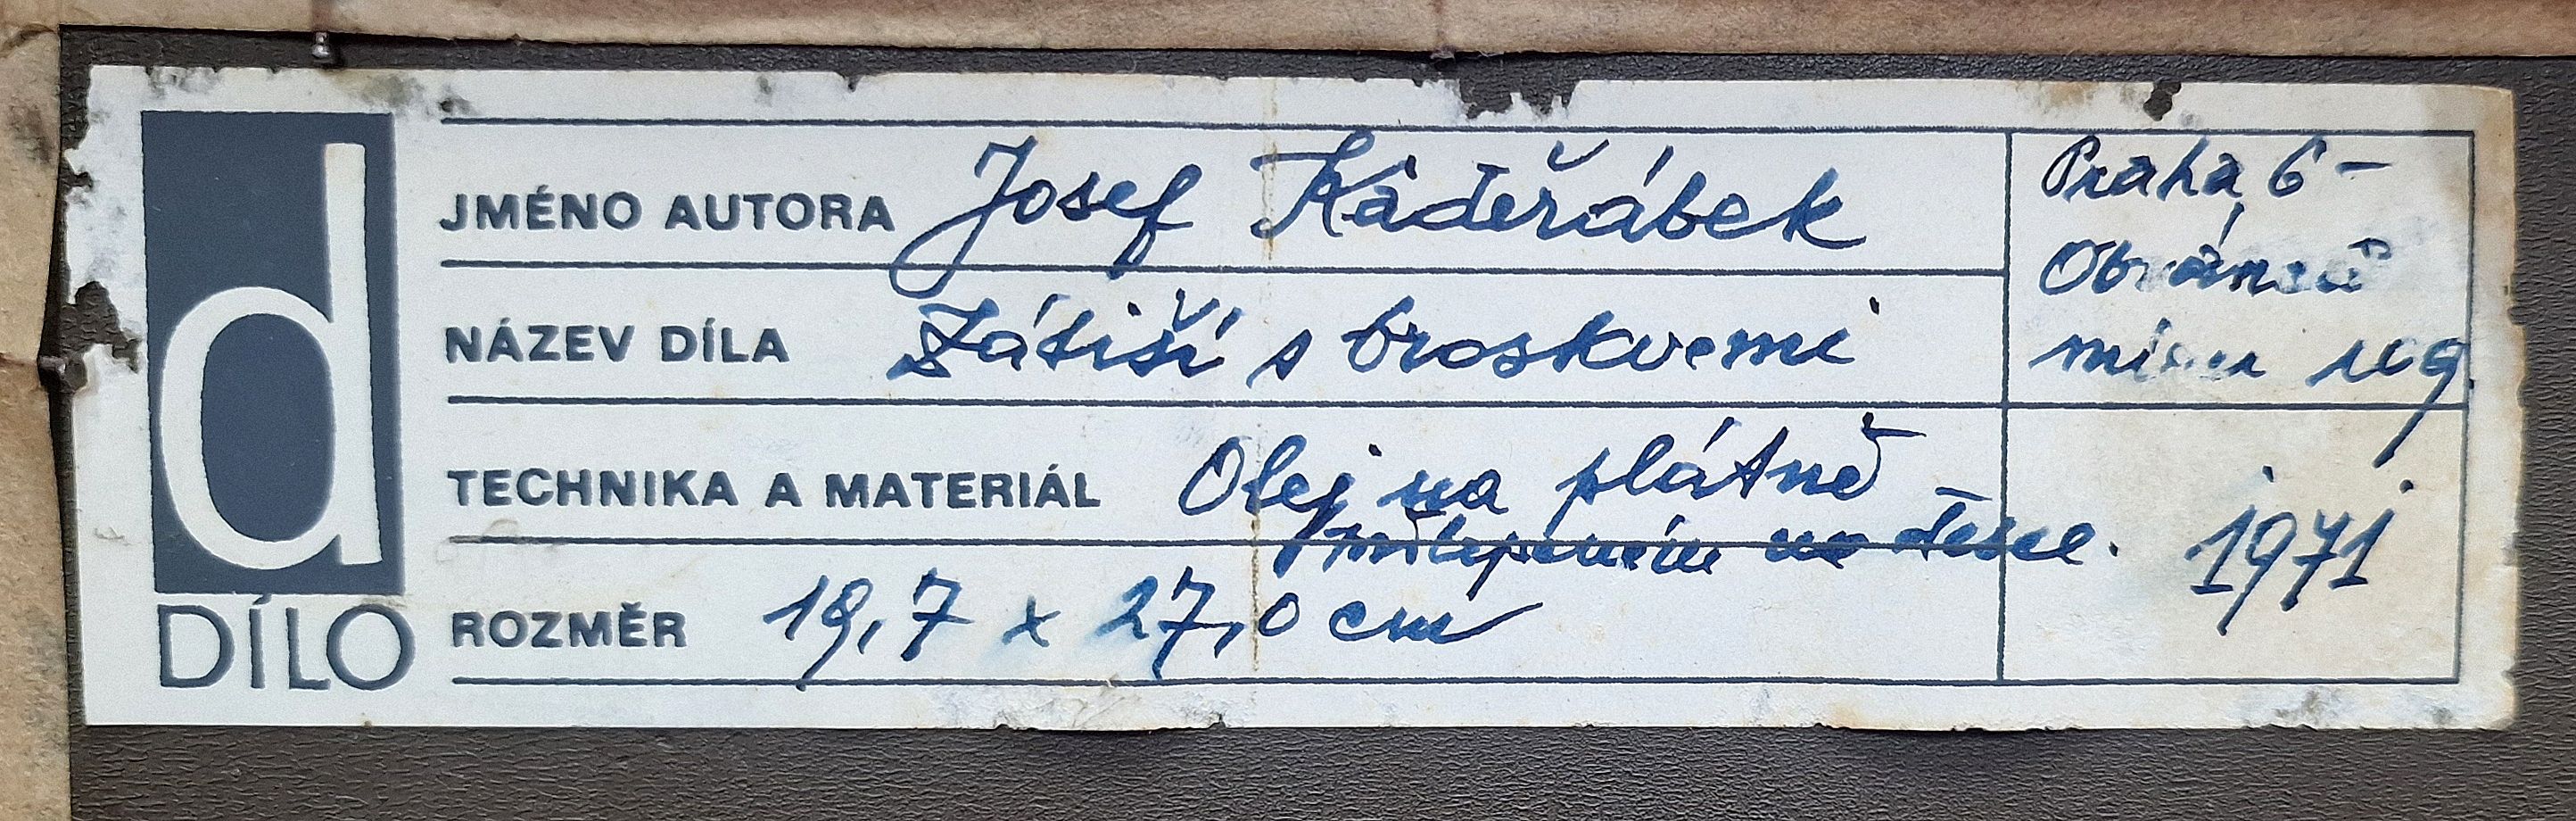 d
DÍLO
JMÉNO AUTORA Josef Kadeřábek
NÁZEV DÍLA Zátiší s broskvemi
TECHNIKA A MATERIÁL Olej na plátně
přilepeném na desce.
ROZMĚR 19,7 x 27,0 cm
Praha 6 -
Obránců
míru 109.
1971